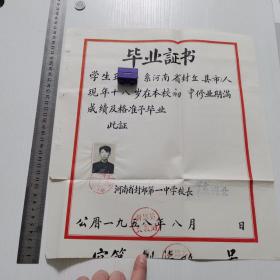 毕业证书
学生 系河南省封丘县市人
现年十八岁在本校初中修业期满
成绩及格准予毕业
此证
河南省封邱第一中学校长
公历一九五八年八月 日
字第 号